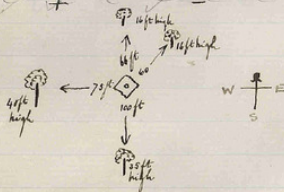 16ft high
16ft high
66ft
60
75ft
40ft
high
100ft
35ft
high
W
E
S